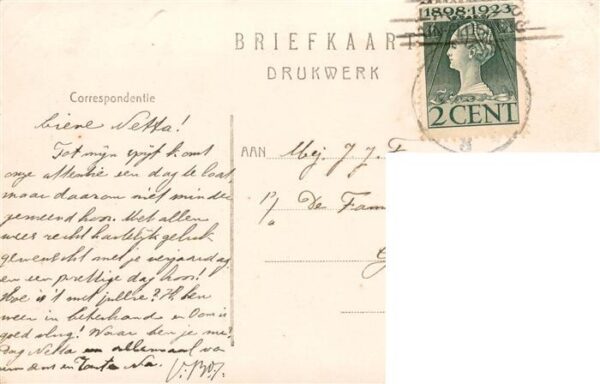 1898·1923
BRIEFKAART
DRUKWERK
2 CENT
Correspondentie
Lieve Netta!
Tot mijn spijt komt
onze attentie een dag te laat,
maar daarom niet minder
gemeend hoor. Met allen
weer recht hartelijk geluk
gewenscht met je verjaardag
en een prettige dag hoor!
Hoe is 't met jullie? Ik ben
weer in beterhand en Oom is
goed vlug! Waar ben je nu?
Dag Netta en allemaal van
oom en Tante Na.
AAN Mej. J. J.
p/o De Fam